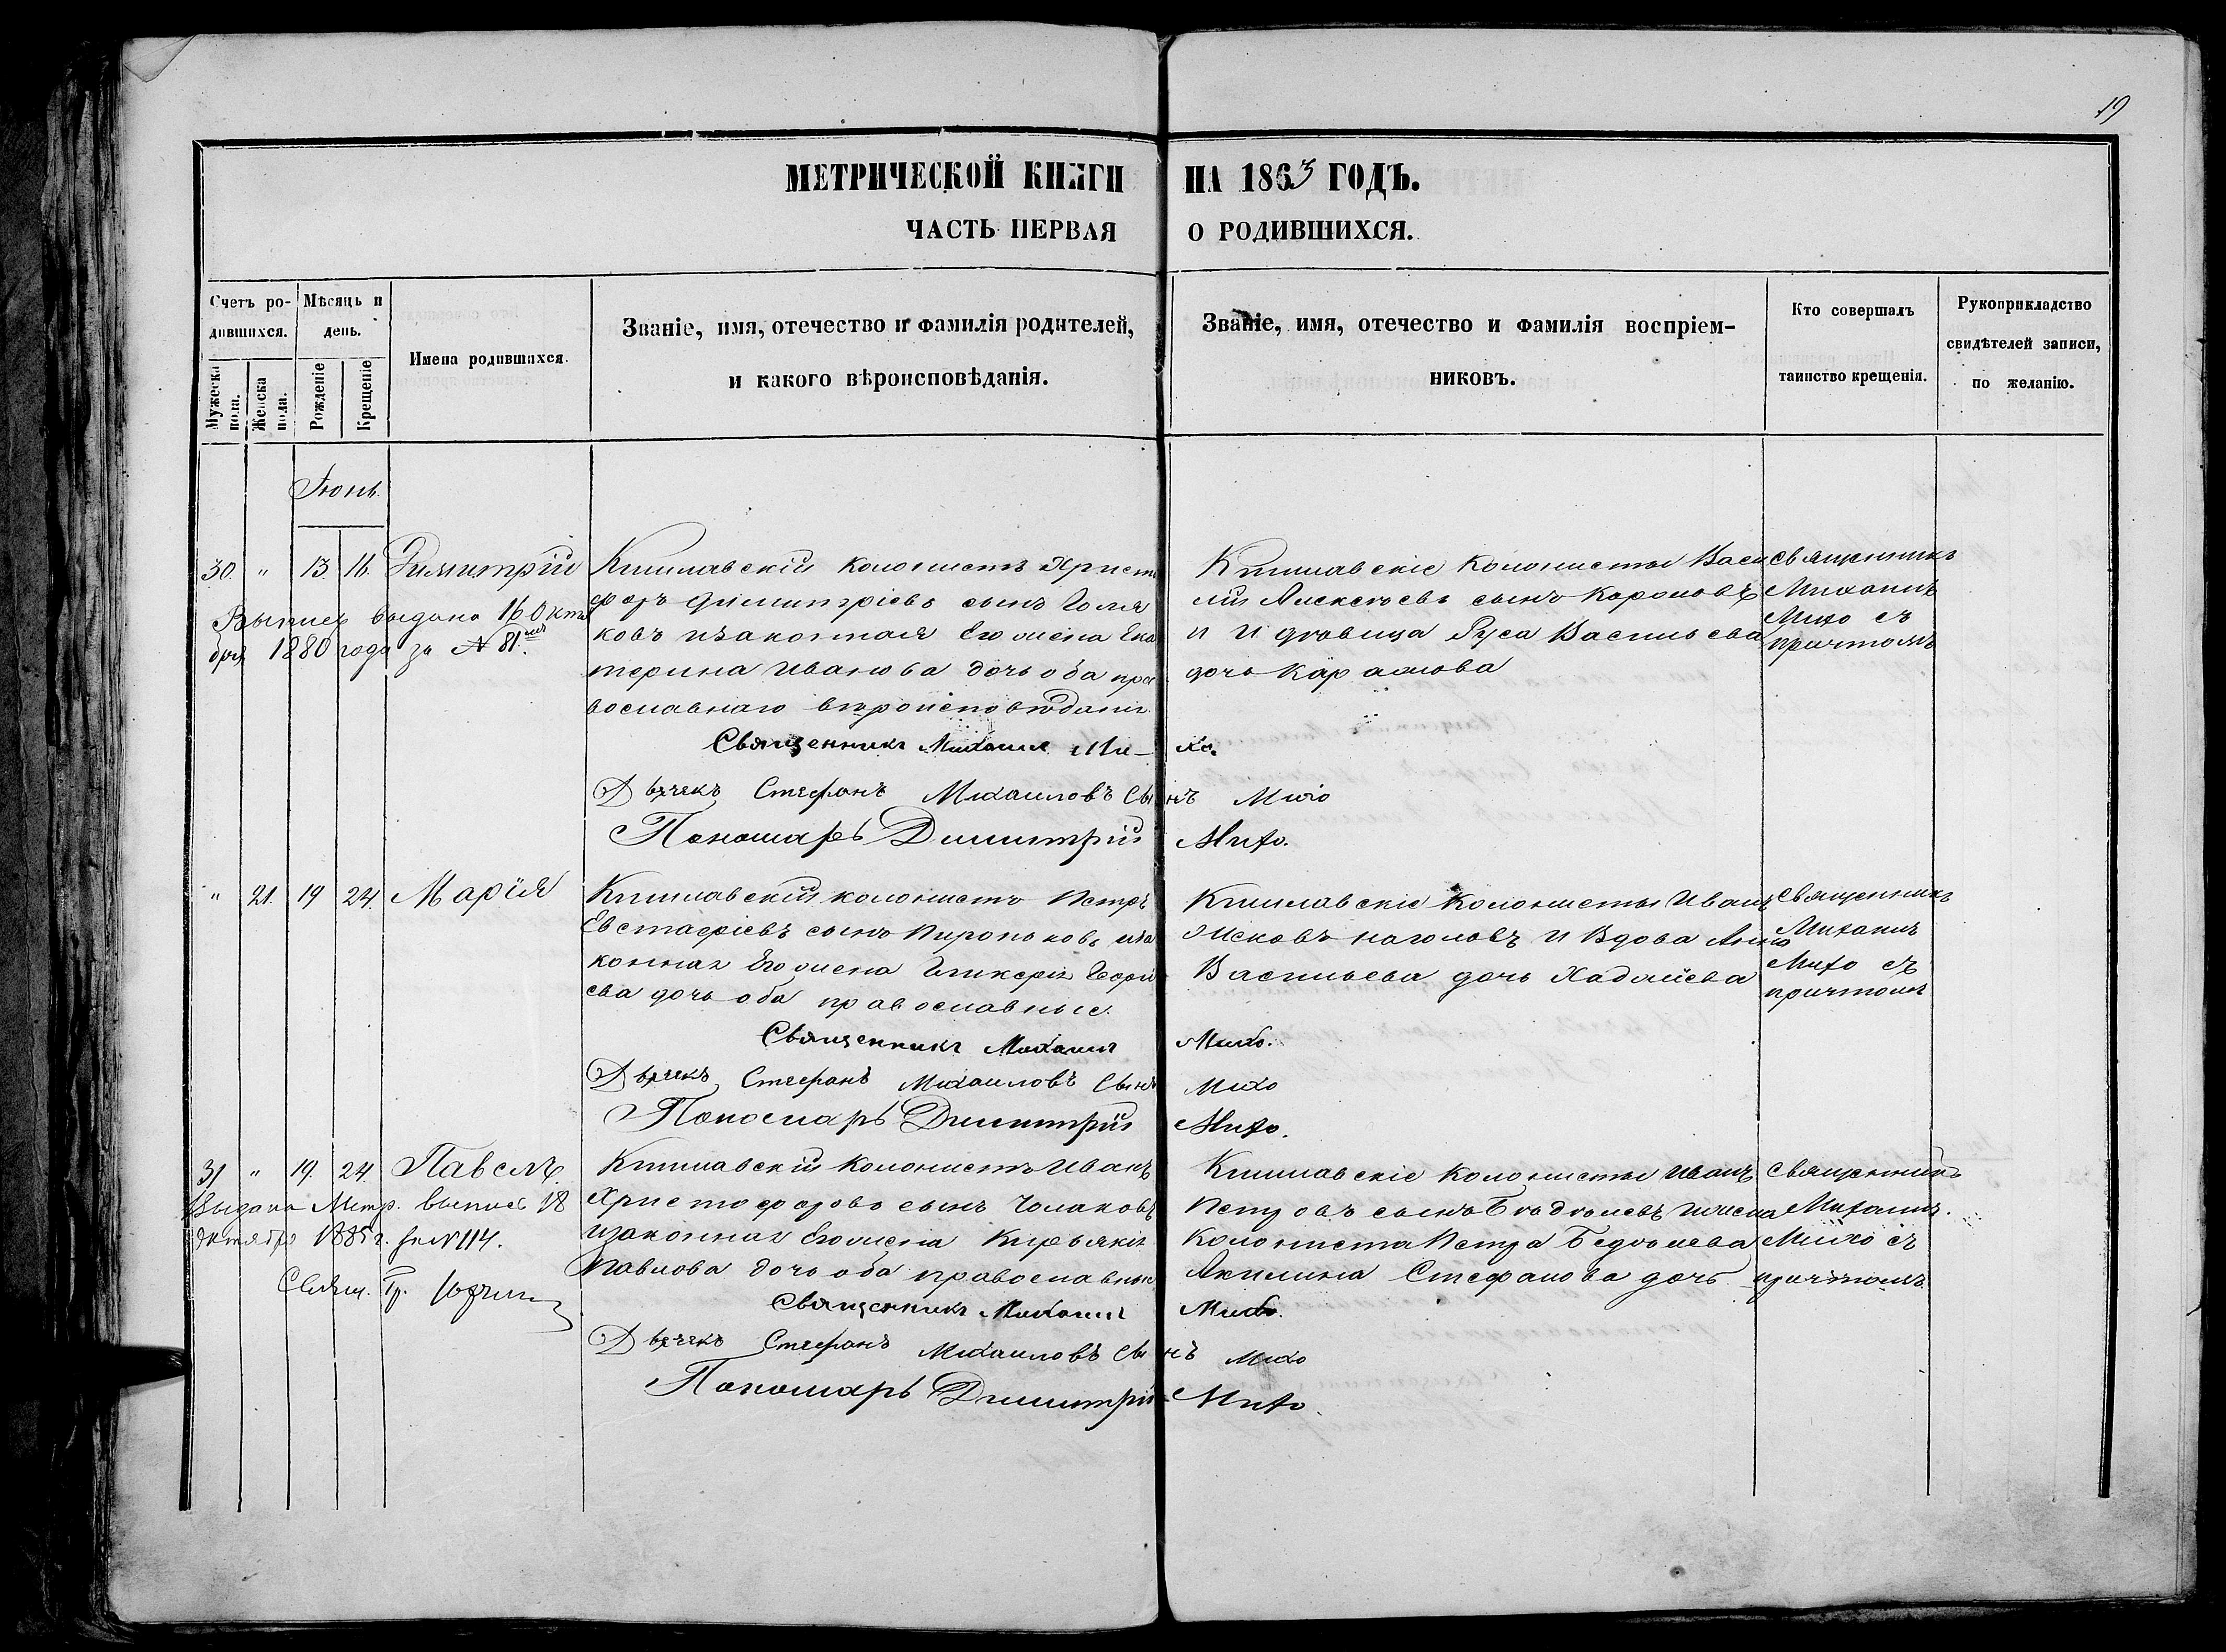 19
МЕТРИЧЕСКОЙ КНИГИ НА 1863 ГОДЪ.
ЧАСТЬ ПЕРВАЯ О РОДИВШИХСЯ.
Счетъ ро-
дившихся.
Мужеска
пола.
Женска
пола.
Мѣсяцъ и
день.
Рожденіе
Крещеніе
Имена родившихся.
Званіе, имя, отечество и фамилія родителей,
и какого вѣроисповѣданія.
Званіе, имя, отечество и фамилія воспріем-
никовъ.
Кто совершалъ
таинство крещенія.
Рукоприкладство
свидѣтелей записи,
по желанію.
Іюнь.
30. " 13. 16. Димитрій
Выпись выдана 16 Октя
бря 1880 года за № 81.
Кишлавскій колонистъ Христо
форъ Димитріевъ сынъ Чола
ковъ изаконная Его жена Ека
терина Иванова дочь оба пра
вославнаго вѣроисповѣданія
Священникъ Михаилъ Ми-
хо.
Дьячекъ Стефанъ Михаиловъ Сынъ Михо
Пономарь Димитрій Михо.
Кишлавскіе колонисты Васи
лій Алексѣевъ сынъ
и дѣвица Руса Васильева
дочь
Священникъ
Михаилъ
Михо съ
причтомъ
" 21. 19 24. Марія
Кишлавскій колонистъ Петръ
Евстафіевъ сынъ иза
конная Его жена Гликерія Георгі
ева дочь оба православные.
Священникъ Михаилъ Михо.
Дьячекъ Стефанъ Михаиловъ Сынъ Михо
Пономарь Димитрій Михо.
Кишлавскіе колонисты Иванъ
и Вдова Анна
Васильева дочь
Священникъ
Михаилъ
Михо съ
причтомъ
31 " 19. 24. Павелъ.
Выдана Метр. выпись 18
Октября 1885 г. за № 114.
Свящ. Гр.
Кишлавскій колонистъ Иванъ
Христофоровъ сынъ Чолаковъ
изаконная Его жена Кирьякія
Павлова дочь оба православные
Священникъ Михаилъ Михо.
Дьячекъ Стефанъ Михаиловъ Сынъ Михо
Пономарь Димитрій Михо.
Кишлавскіе колонисты Иванъ
Петровъ сынъ ижена
колониста Петра
Акилина Стефанова дочь
Священникъ
Михаилъ
Михо съ
причтомъ